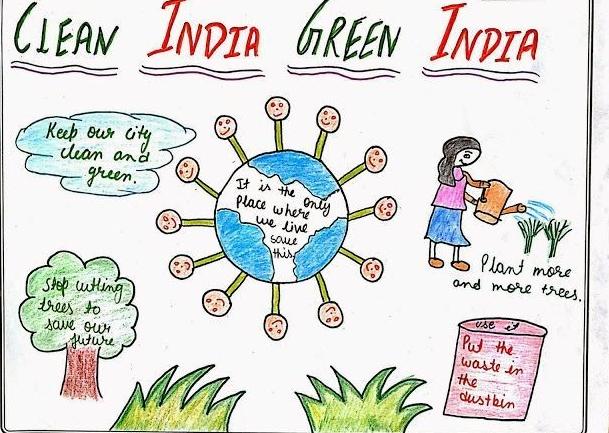 CLEAN INDIA GREEN INDIA
Keep our city
clean and
green.
It is the only
place where
we live
save
this
Plant more
and more trees.
Stop cutting
trees to
save our
future
use it
Put the
waste in
the
dustbin